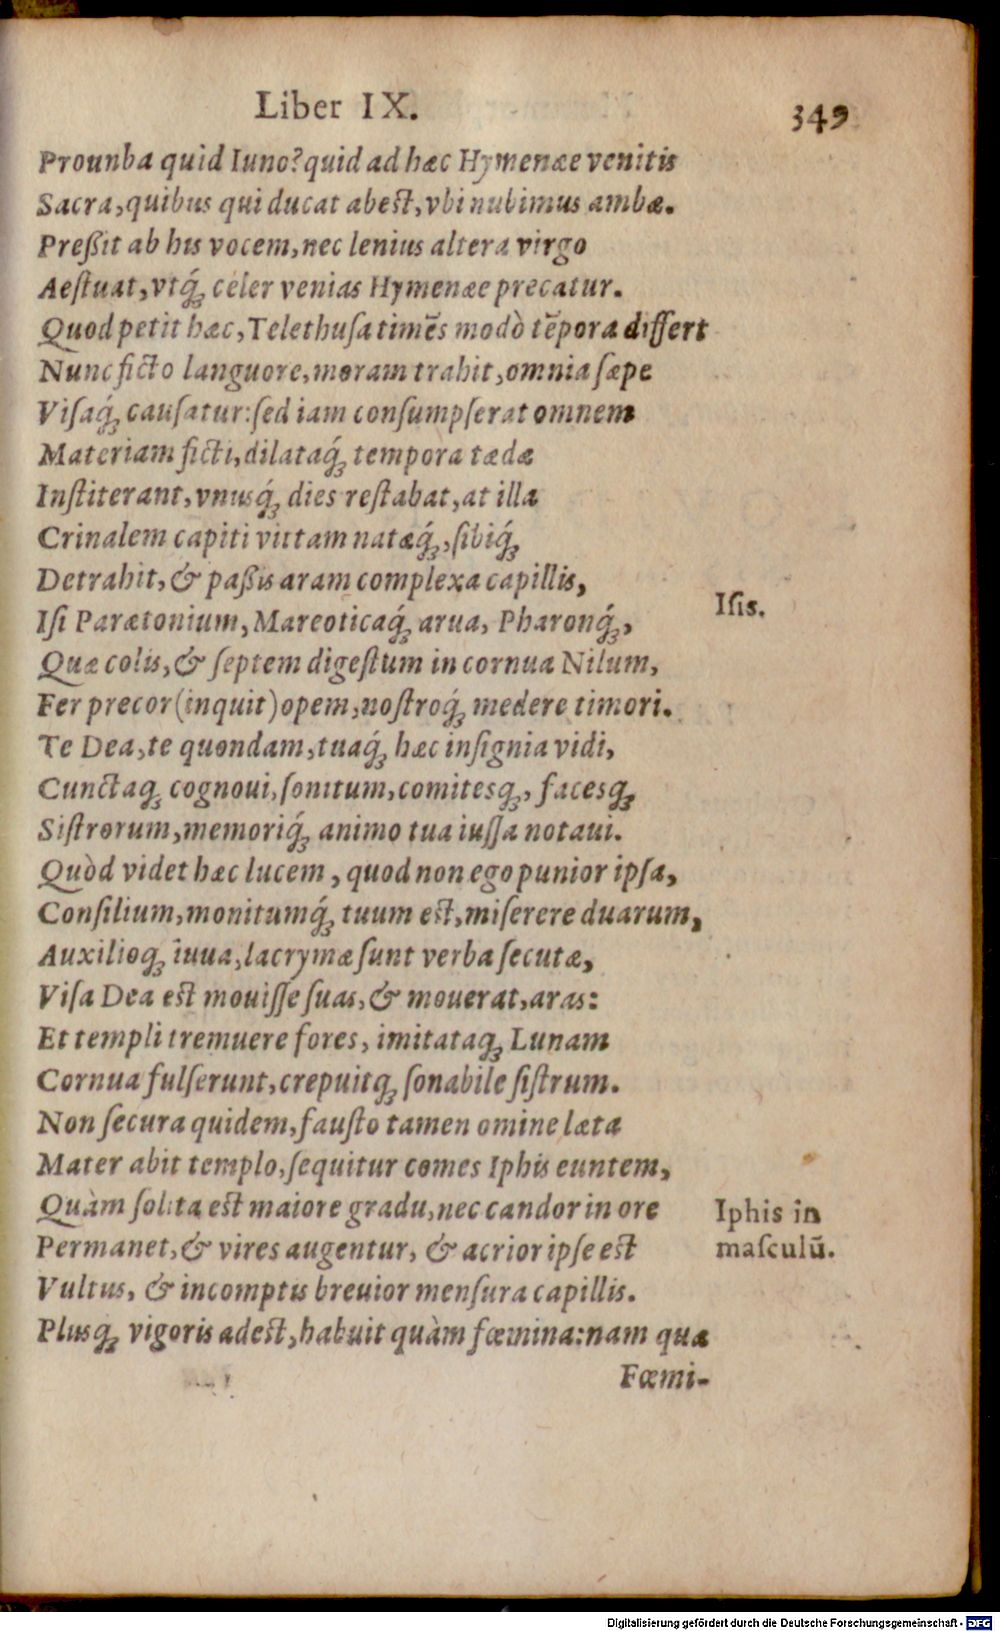 Liber IX. 349
Prounba quid Iuno? quid ad hæc Hymenæe venitis
Sacra, quibus qui ducat abest, vbi nubimus ambæ.
Preßit ab his vocem, nec lenius altera virgo
Aeſtuat, vtq́ꝫ celer venias Hymenæe precatur.
Quod petit hæc, Telethuſa timēs modò tēpora differt
Nunc ficto languore, moram trahit, omnia ſæpe
Viſaq́ꝫ cauſatur: ſed iam conſumpſerat omnem
Materiam ficti, dilataq́ꝫ tempora tædæ
Inſtiterant, vnusq́ꝫ dies reſtabat, at illa
Crinalem capiti vittam natæq́ꝫ, ſibiq́ꝫ
Detrahit, & paßis aram complexa capillis,
Iſi Parætonium, Mareoticaq́ꝫ arua, Pharonq́ꝫ,
Iſis.
Quæ colis, & ſeptem digeſtum in cornua Nilum,
Fer precor (inquit) opem, noſtroq́ꝫ medere timori.
Te Dea, te quondam, tuaq́ꝫ hæc inſignia vidi,
Cunctaqꝫ cognoui, ſonitum, comitesqꝫ, facesqꝫ
Siſtrorum, memoriq́ꝫ animo tua iuſſa notaui.
Quòd videt hæc lucem, quod non ego punior ipſa,
Conſilium, monitumq́ꝫ tuum est, miſerere duarum,
Auxilioqꝫ iuua, lacrymæ ſunt verba ſecutæ,
Viſa Dea est mouiſſe ſuas, & mouerat, aras:
Et templi tremuere fores, imitataqꝫ Lunam
Cornua fulſerunt, crepuitqꝫ ſonabile ſiſtrum.
Non ſecura quidem, fauſto tamen omine læta
Mater abit templo, ſequitur comes Iphis euntem,
Quàm ſolita est maiore gradu, nec candor in ore
Iphis in
Permanet, & vires augentur, & acrior ipſe est
maſculū.
Vultus, & incomptis breuior menſura capillis.
Plusqꝫ vigoris adest, habuit quàm fœmina: nam quæ
Fœmi-
Digitalisierung gefördert durch die Deutsche Forschungsgemeinschaft - DFG